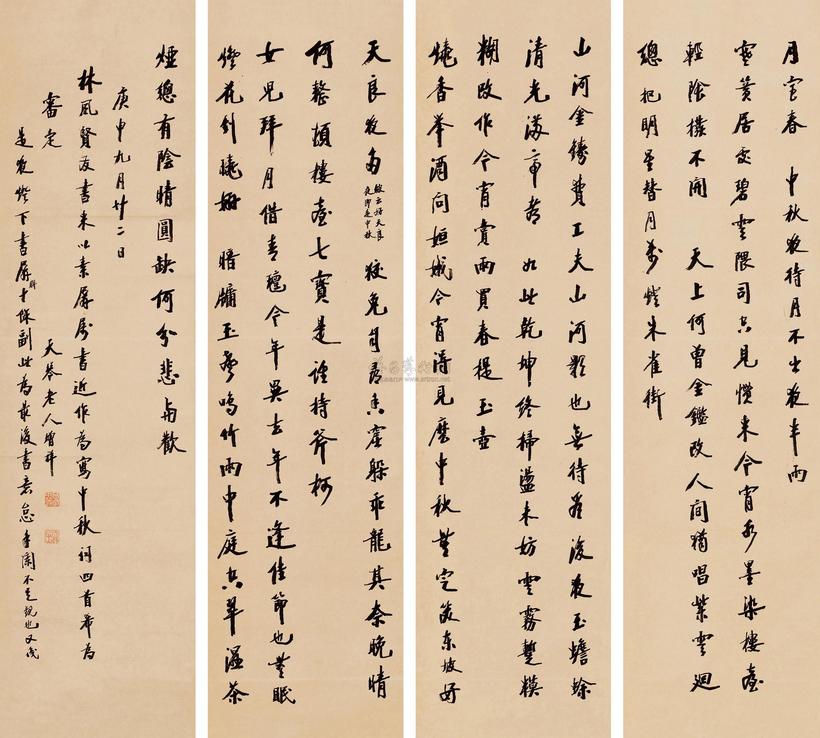 月宮春　中秋夜待月不出夜半雨
雲黃居處碧雲隈司空見慣來今宵水墨染樓臺
輕陰撥不開　天上何曾金鑑改人間猶唱紫雲迴
總把明星替月夢燈朱雀街
山河金鏡費工夫山河影也無待看後夜玉蟾蜍
清光滿帝都　如此乾坤終掃盪未妨雲霧暫模
糊改作今宵賞雨買春提玉壺
燒香舉酒問姮娥今宵得見麼中秋無定負東坡好
天良夜多
狡兔自尋香窟躲乖龍其奈晚晴
何整頓樓臺七寶是誰持斧柯
女兒拜月借青氊今年異去年不逢佳節也無眠
燈花剪曉妍　暗牖玉蟲鳴竹雨中庭空翠濕茶
煙總有陰晴圓缺何分悲與歡
庚申九月廿二日
林風賢友書來以素屏屬書近作為寫中秋詞四首希為
審定
天琴老人
是夜燈下書屏十條副此為最後書意怠手闌不足觀也又識